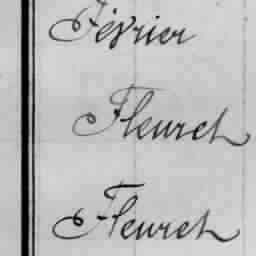 Février
Fleuret
Fleuret